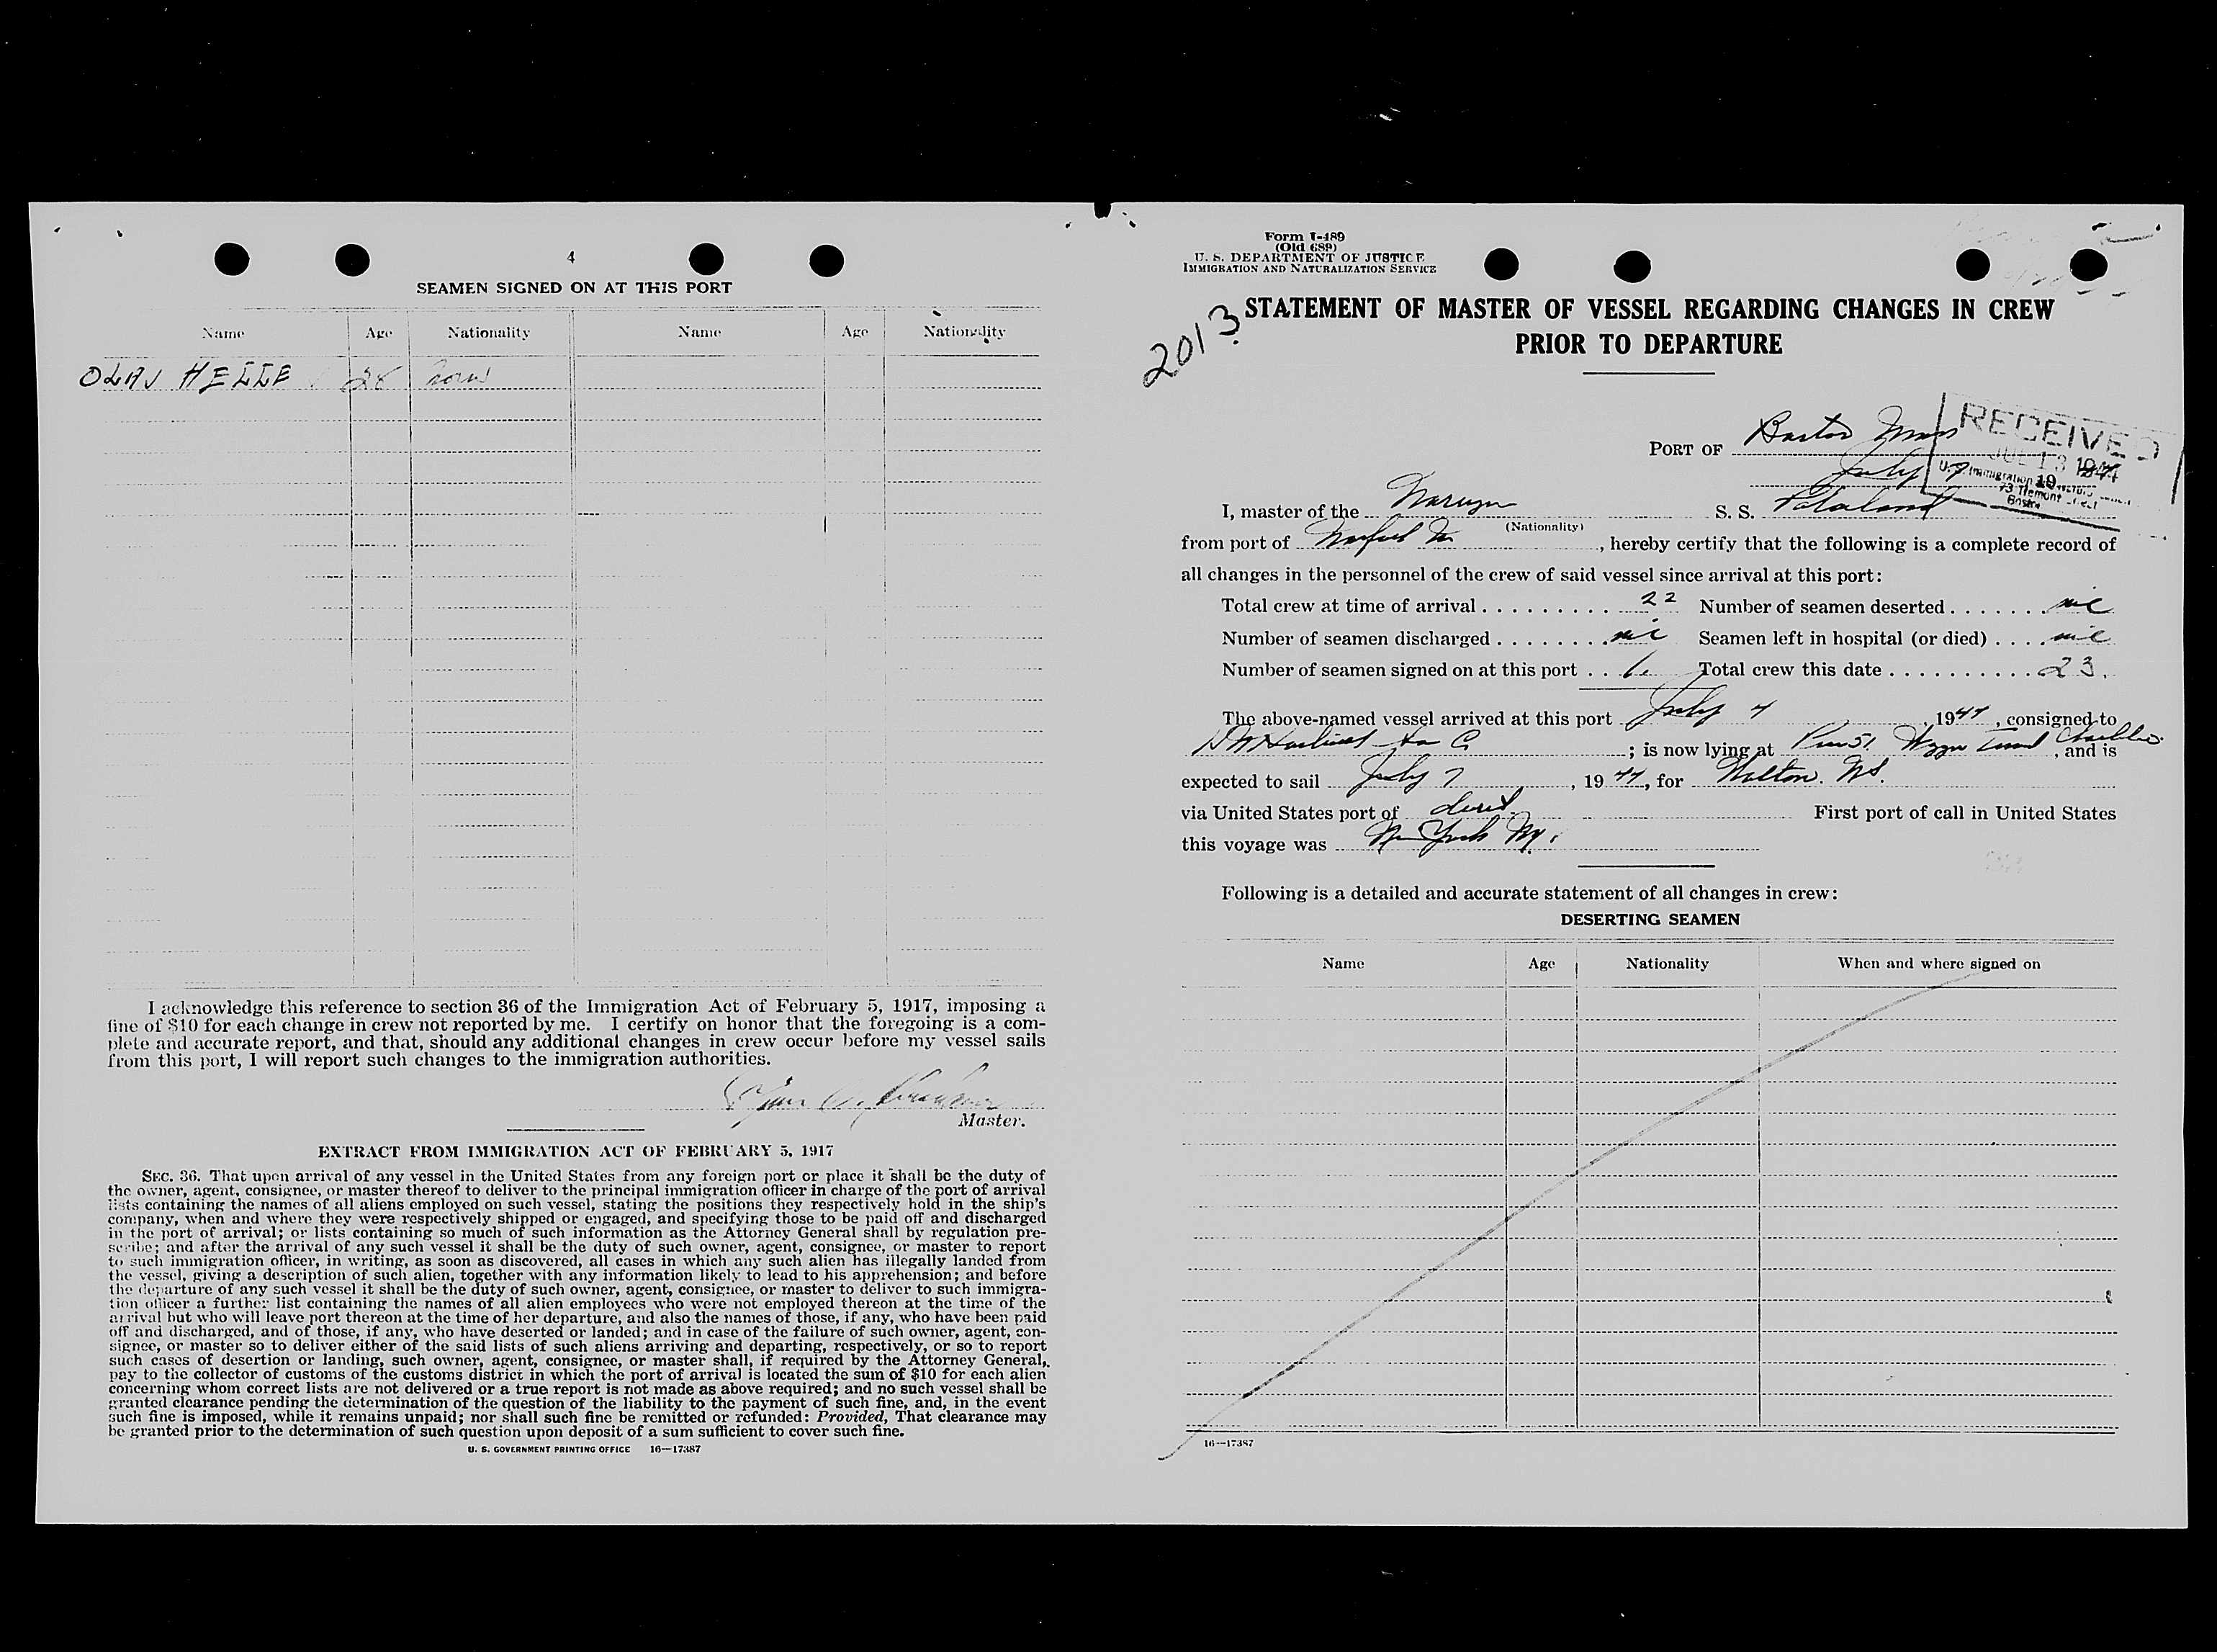 4
SEAMEN SIGNED ON AT THIS PORT
Name Age Nationality Name Age Nationality
OLAV HELLE 28 Norw
I acknowledge this reference to section 36 of the Immigration Act of February 5, 1917, imposing a
fine of $10 for each change in crew not reported by me. I certify on honor that the foregoing is a com-
plete and accurate report, and that, should any additional changes in crew occur before my vessel sails
from this port, I will report such changes to the immigration authorities.
Master.
EXTRACT FROM IMMIGRATION ACT OF FEBRUARY 5, 1917
SEC. 36. That upon arrival of any vessel in the United States from any foreign port or place it shall be the duty of
the owner, agent, consignee, or master thereof to deliver to the principal immigration officer in charge of the port of arrival
lists containing the names of all aliens employed on such vessel, stating the positions they respectively hold in the ship's
company, when and where they were respectively shipped or engaged, and specifying those to be paid off and discharged
in the port of arrival; or lists containing so much of such information as the Attorney General shall by regulation pre-
scribe; and after the arrival of any such vessel it shall be the duty of such owner, agent, consignee, or master to report
to such immigration officer, in writing, as soon as discovered, all cases in which any such alien has illegally landed from
the vessel, giving a description of such alien, together with any information likely to lead to his apprehension; and before
the departure of any such vessel it shall be the duty of such owner, agent, consignee, or master to deliver to such immigra-
tion officer a further list containing the names of all alien employees who were not employed thereon at the time of the
arrival but who will leave port thereon at the time of her departure, and also the names of those, if any, who have been paid
off and discharged, and of those, if any, who have deserted or landed; and in case of the failure of such owner, agent, con-
signee, or master so to deliver either of the said lists of such aliens arriving and departing, respectively, or so to report
such cases of desertion or landing, such owner, agent, consignee, or master shall, if required by the Attorney General,
pay to the collector of customs of the customs district in which the port of arrival is located the sum of $10 for each alien
concerning whom correct lists are not delivered or a true report is not made as above required; and no such vessel shall be
granted clearance pending the determination of the question of the liability to the payment of such fine, and, in the event
such fine is imposed, while it remains unpaid; nor shall such fine be remitted or refunded: Provided, That clearance may
be granted prior to the determination of such question upon deposit of a sum sufficient to cover such fine.
U. S. GOVERNMENT PRINTING OFFICE 16—17387
Form I-489
(Old 689)
U. S. DEPARTMENT OF JUSTICE
IMMIGRATION AND NATURALIZATION SERVICE
2013
STATEMENT OF MASTER OF VESSEL REGARDING CHANGES IN CREW
PRIOR TO DEPARTURE
RECEIVED
JUL 13 1944
U. S. Immigration
73 Tremont Street
Boston
PORT OF Boston Mass
July 7 1944
I, master of the S. S.
(Nationality)
from port of , hereby certify that the following is a complete record of
all changes in the personnel of the crew of said vessel since arrival at this port:
Total crew at time of arrival . . . . . . . . . 22 Number of seamen deserted . . . . . . . nil
Number of seamen discharged . . . . . . . . nil Seamen left in hospital (or died) . . . . nil
Number of seamen signed on at this port . . 1. Total crew this date . . . . . . . . . . 23.
The above-named vessel arrived at this port July 4 1944, consigned to
; is now lying at Pier 51 , and is
expected to sail July 7, 1944, for Walton. NS.
via United States port of direct First port of call in United States
this voyage was New York NY.
Following is a detailed and accurate statement of all changes in crew:
DESERTING SEAMEN
Name Age Nationality When and where signed on
16—17387